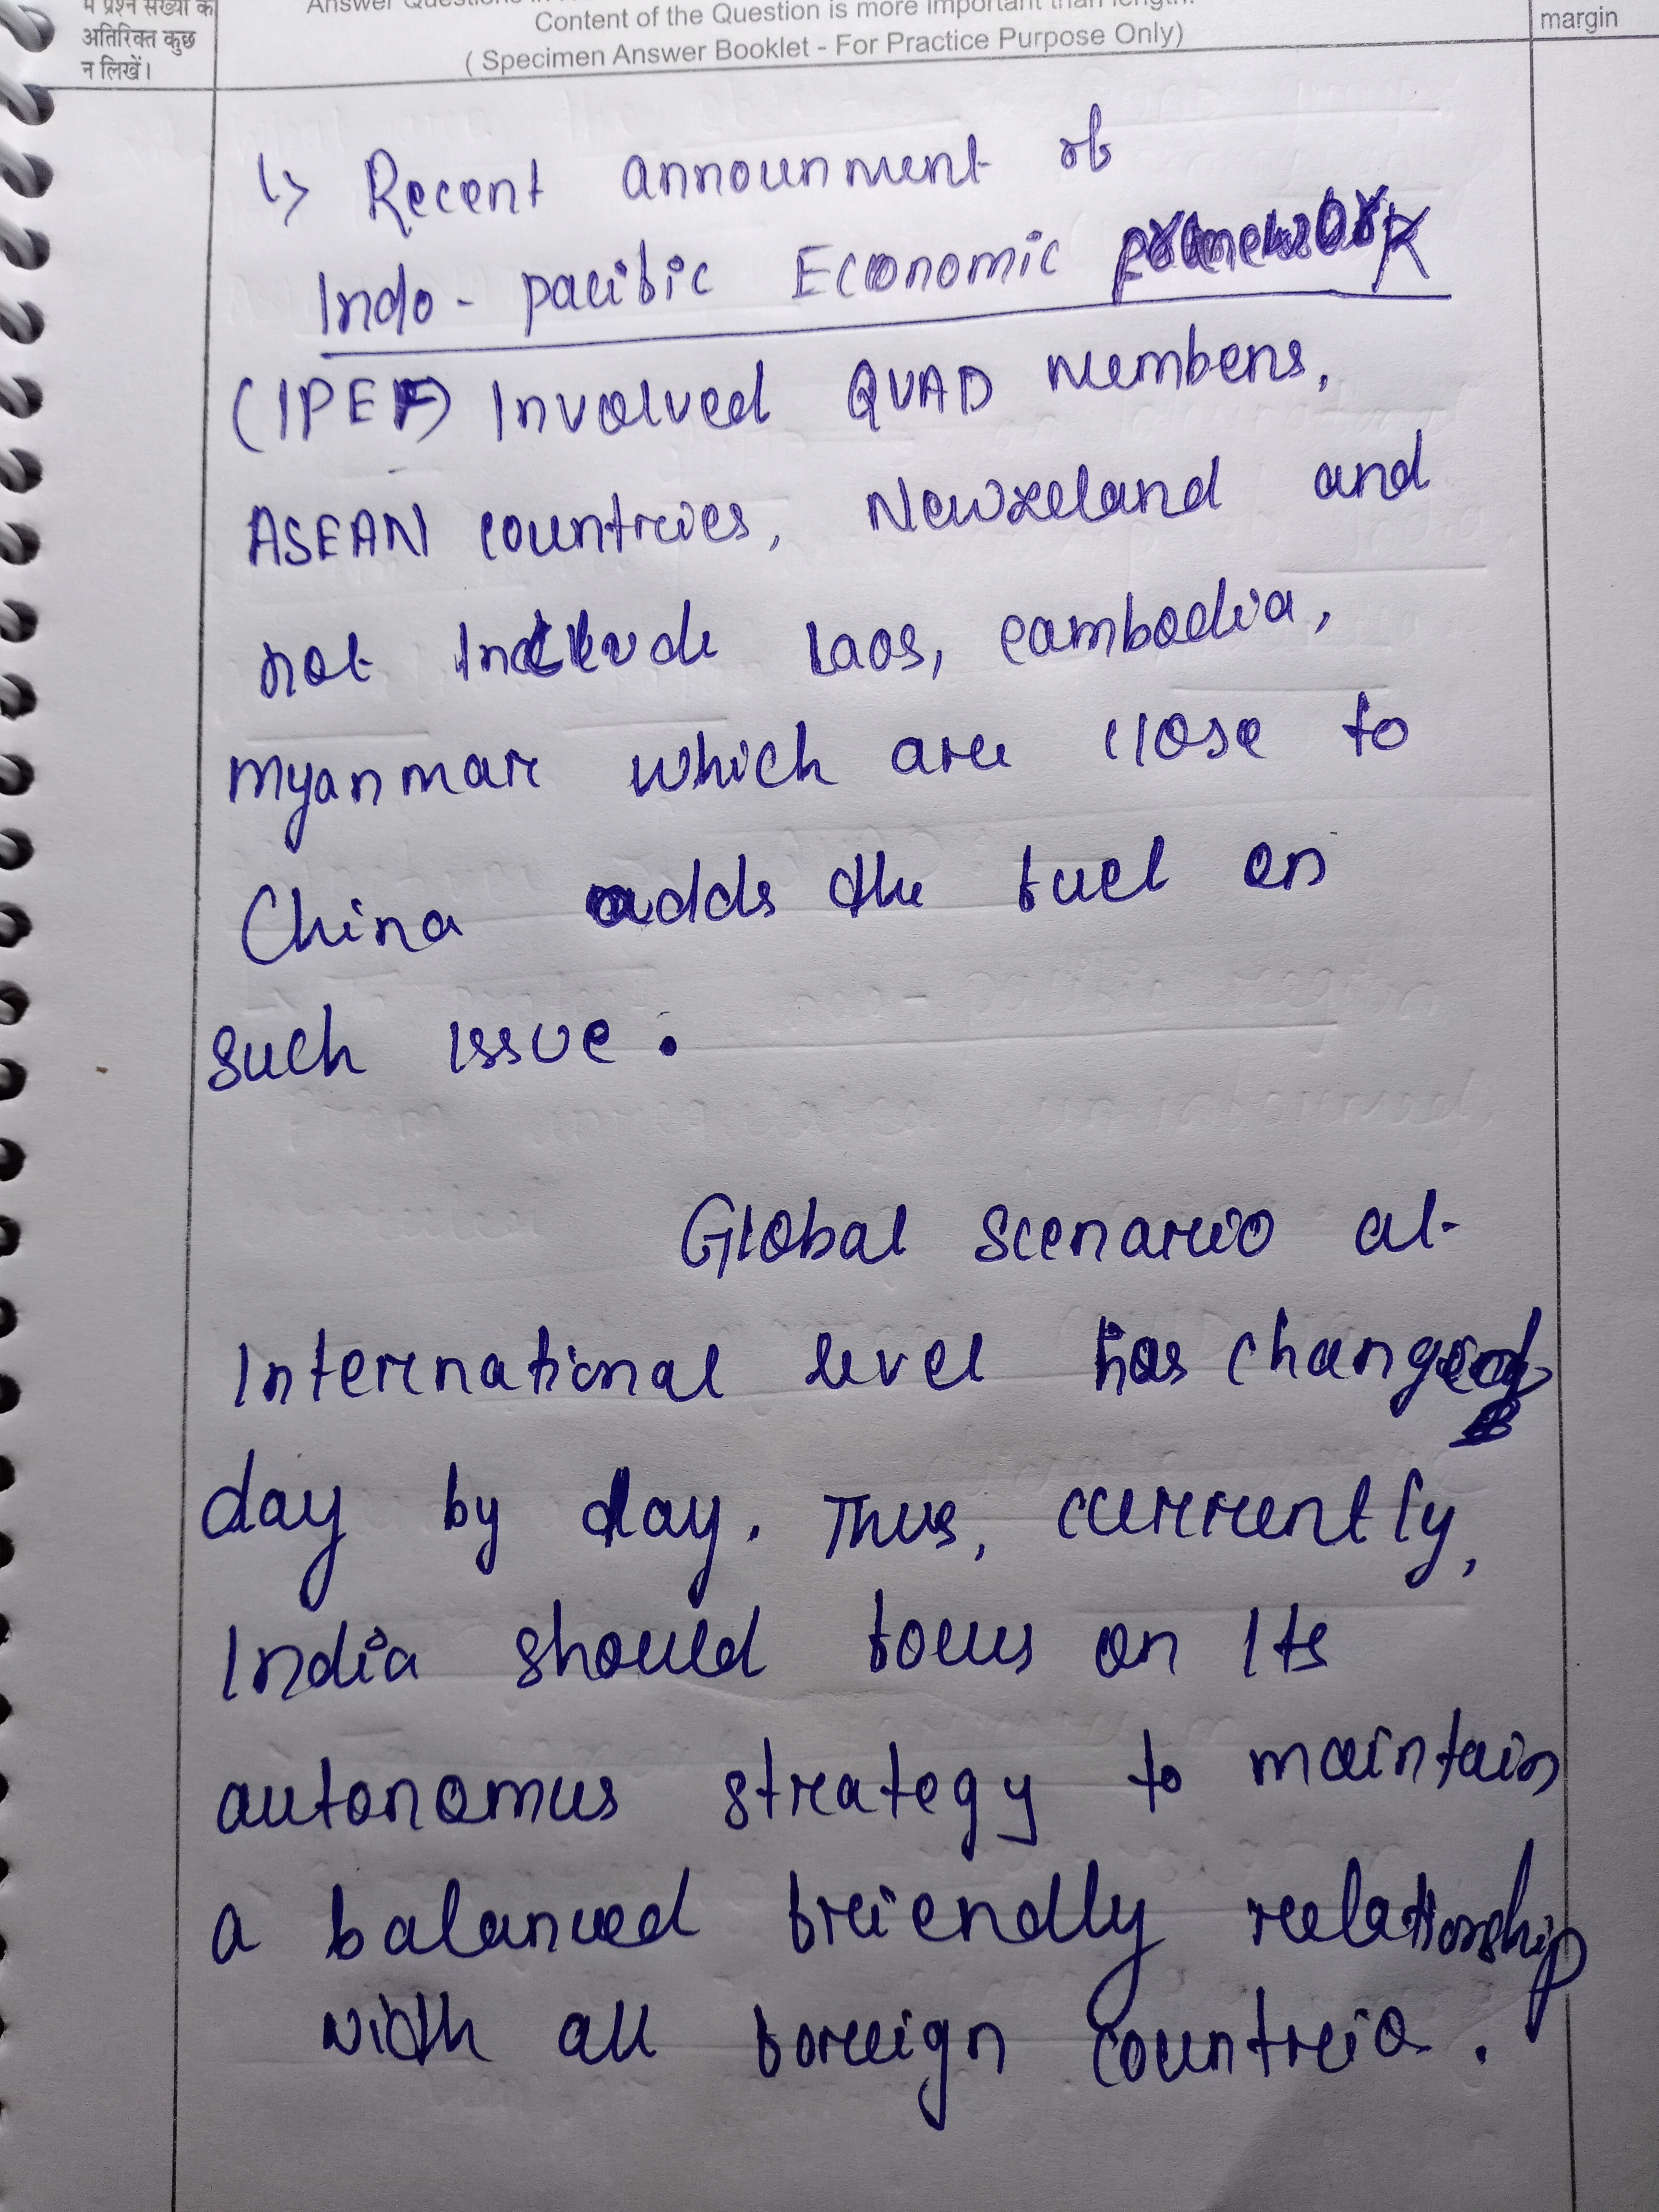 में प्रश्न संख्या के
अतिरिक्त कुछ
न लिखें।
Content of the Question is more important than length.
( Specimen Answer Booklet - For Practice Purpose Only)
margin
↳ Recent announment of
Indo - pacific Economic framework
(IPEF) Involved QUAD members,
ASEAN countries, Newzeland and
not Include Laos, cambodia,
Myanmar which are close to
China adds the fuel on
such issue.
Global scenario at
International level has changed
day by day. Thus, currently,
India should focus on Its
autonomus strategy to maintain
a balanced friendly relationship
with all foreign countries.